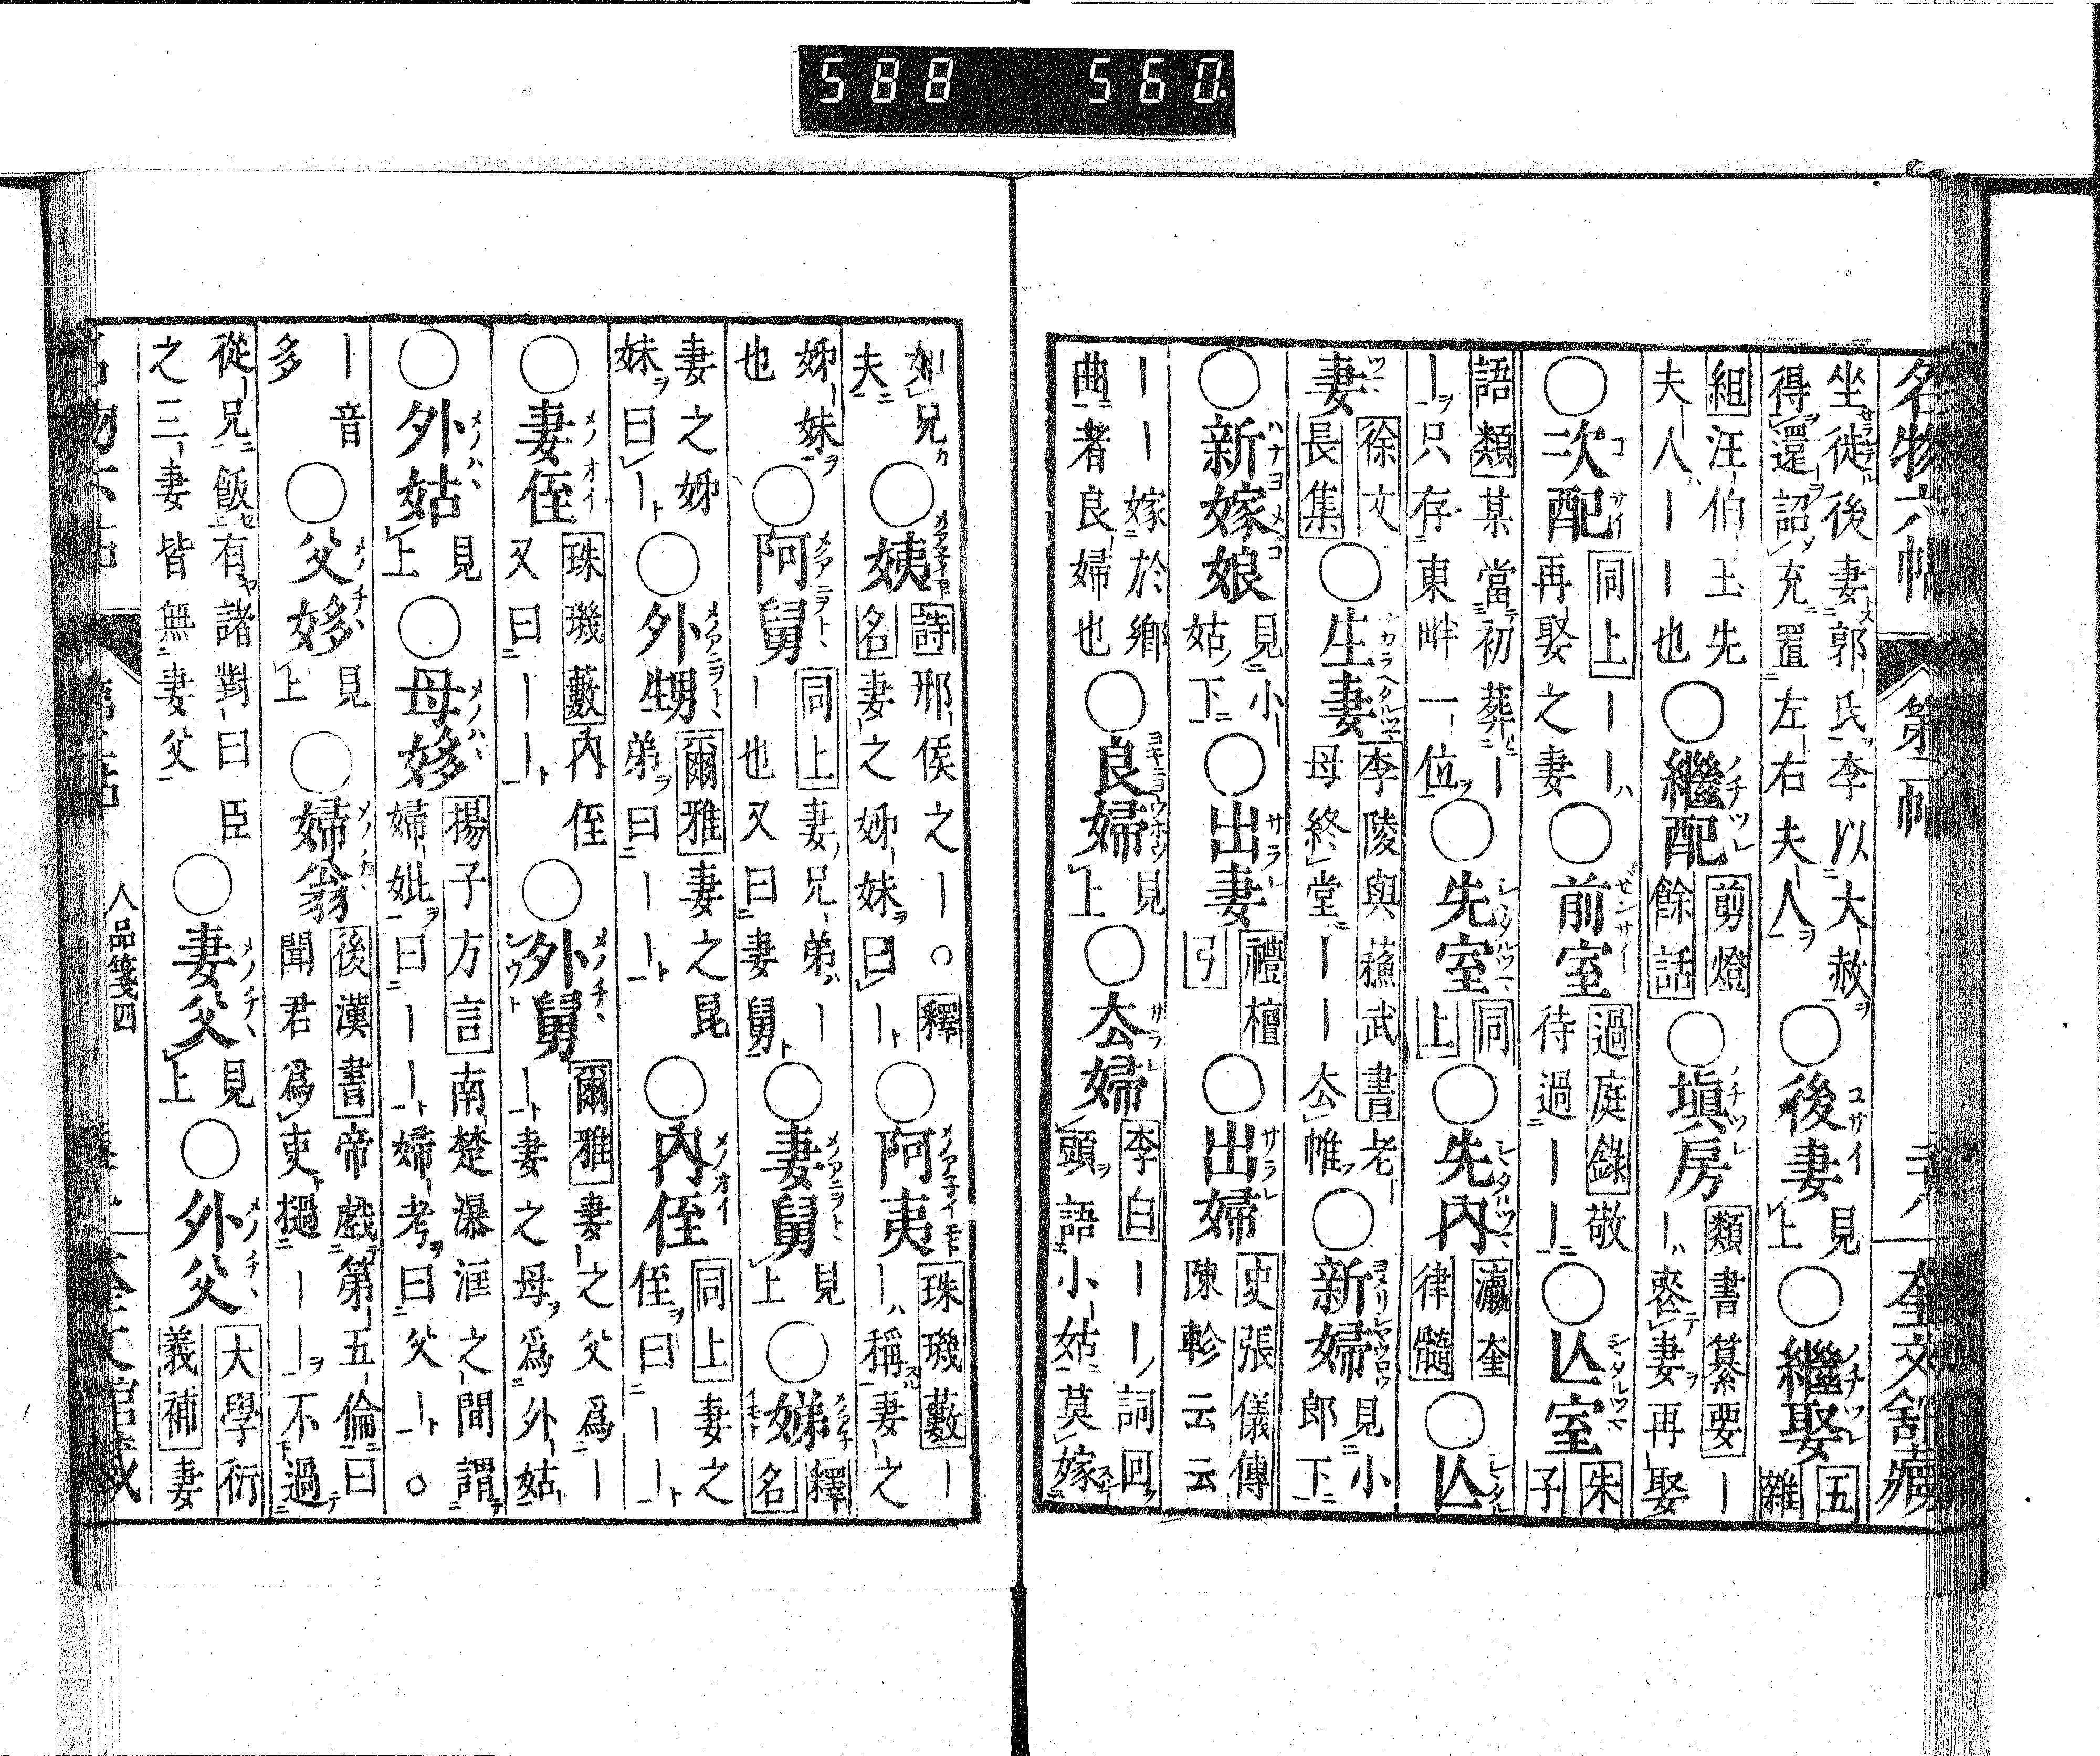 588 560
名物六帖 第二帖 奎文舘藏
坐徙後妻郭氏李以大赦
得還詔充置左右夫人
○後妻見上
○繼娶五雜
組汪伯玉先
夫人ーー也
○繼配剪燈餘話
○塡房類書纂要ー
喪妻再娶
○次配同上ーー
再娶之妻
○前室過庭錄敬
待過ーー
○亾室朱子
語類某當初葬ー
ー只存東畔一位
○先室同上
○先內瀛奎律髓
○亾
妻徐文長集
○生妻李陵與蘇武書老
母終堂ーー去帷
○新婦見小郎下
○新嫁娘見小姑下
○出妻禮檀弓
○出婦史張儀傳
陳軫云云
ーー嫁於鄉
曲者良婦也
○良婦見上
○去婦李白ーー詞回
頭語小姑莫嫁
如兄夫
○姨詩邢侯之ー。釋
名妻之姊妹曰ー
○阿夷珠璣藪ー
ー稱妻之
姊妹也
○阿舅同上妻兄弟ー
ー也又曰妻舅
○妻舅見上
○娣釋名
妻之姊
妹曰ー
○外甥爾雅妻之昆
弟曰ーー
○內侄同上妻之
侄曰ーー
○妻侄珠璣藪內侄
又曰ーー
○外舅爾雅妻之父爲ー
ー妻之母爲外姑
○外姑見上
○母姼揚子方言南楚瀑洭之間謂
婦妣曰ーー婦考曰父ー。
ー音多
○父姼見上
○婦翁後漢書帝戲第五倫曰
聞君爲吏撾ーー不過
從兄飯有諸對曰臣
之三妻皆無妻父
○妻父見上
○外父大學衍義補妻
人品箋四